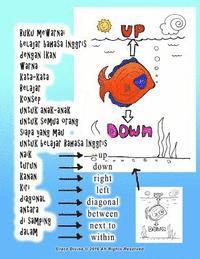 Buku Mewarnai
belajar bahasa Inggris
dengan Ikan
Warna
kata-kata
Belajar
Konsep
untuk anak-anak
untuk semua orang
siapa yang mau
untuk belajar bahasa Inggris
naik up
turun down
kanan right
kiri left
diagonal diagonal
antara between
di samping next to
dalam within
UP
DOWN
Grace Divine © 2016 All Rights Reserved